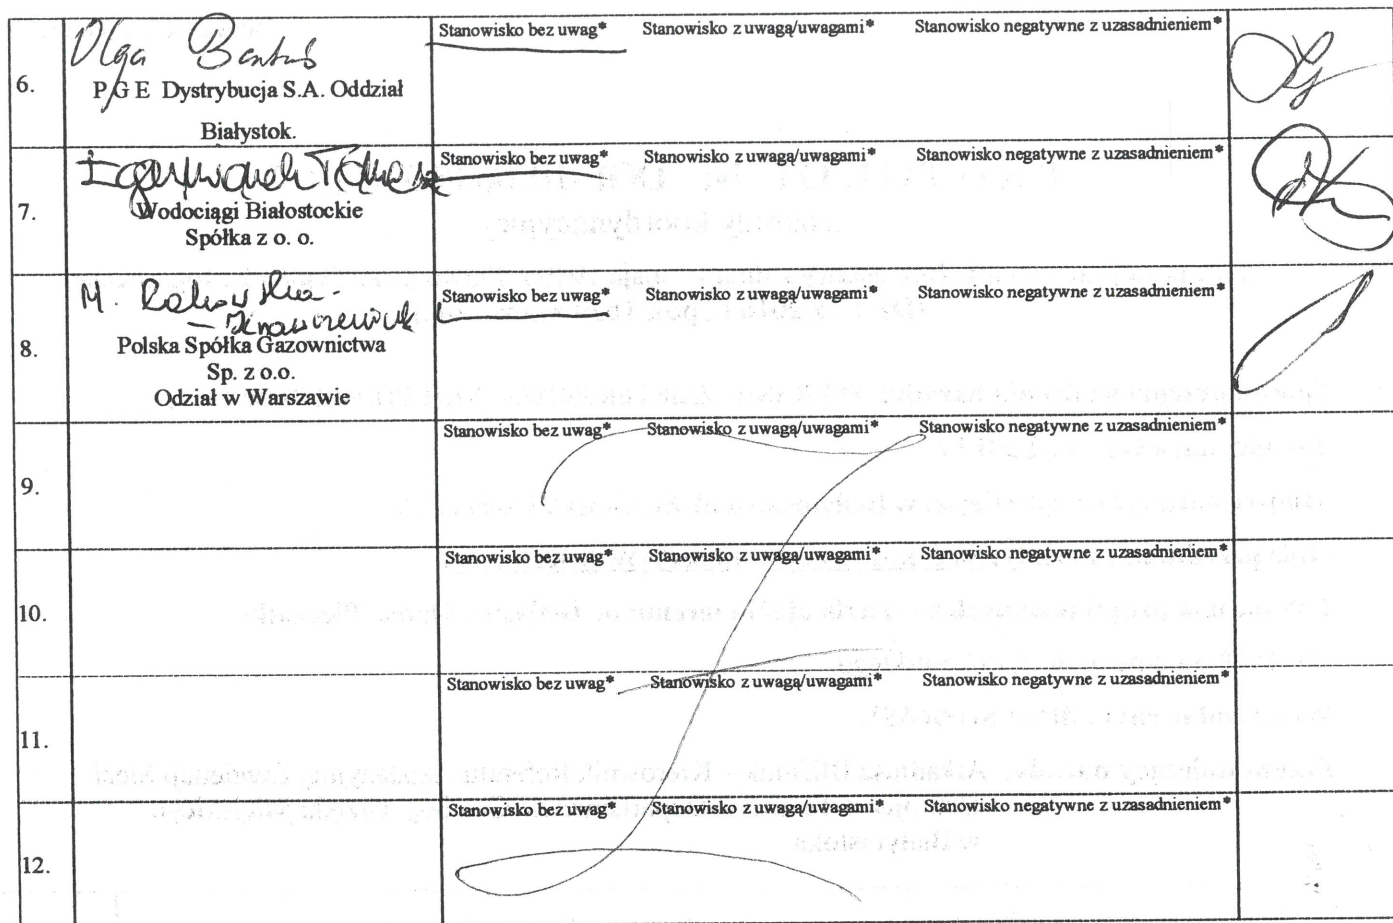 Olga
6.
P G E Dystrybucja S.A. Oddział
Białystok.
Stanowisko bez uwag* Stanowisko z uwagą/uwagami* Stanowisko negatywne z uzasadnieniem*
7.
Wodociągi Białostockie
Spółka z o. o.
Stanowisko bez uwag* Stanowisko z uwagą/uwagami* Stanowisko negatywne z uzasadnieniem*
M.
8.
Polska Spółka Gazownictwa
Sp. z o.o.
Odział w Warszawie
Stanowisko bez uwag* Stanowisko z uwagą/uwagami* Stanowisko negatywne z uzasadnieniem*
9.
Stanowisko bez uwag* Stanowisko z uwagą/uwagami* Stanowisko negatywne z uzasadnieniem*
10.
Stanowisko bez uwag* Stanowisko z uwagą/uwagami* Stanowisko negatywne z uzasadnieniem*
11.
Stanowisko bez uwag* Stanowisko z uwagą/uwagami* Stanowisko negatywne z uzasadnieniem*
12.
Stanowisko bez uwag* Stanowisko z uwagą/uwagami* Stanowisko negatywne z uzasadnieniem*